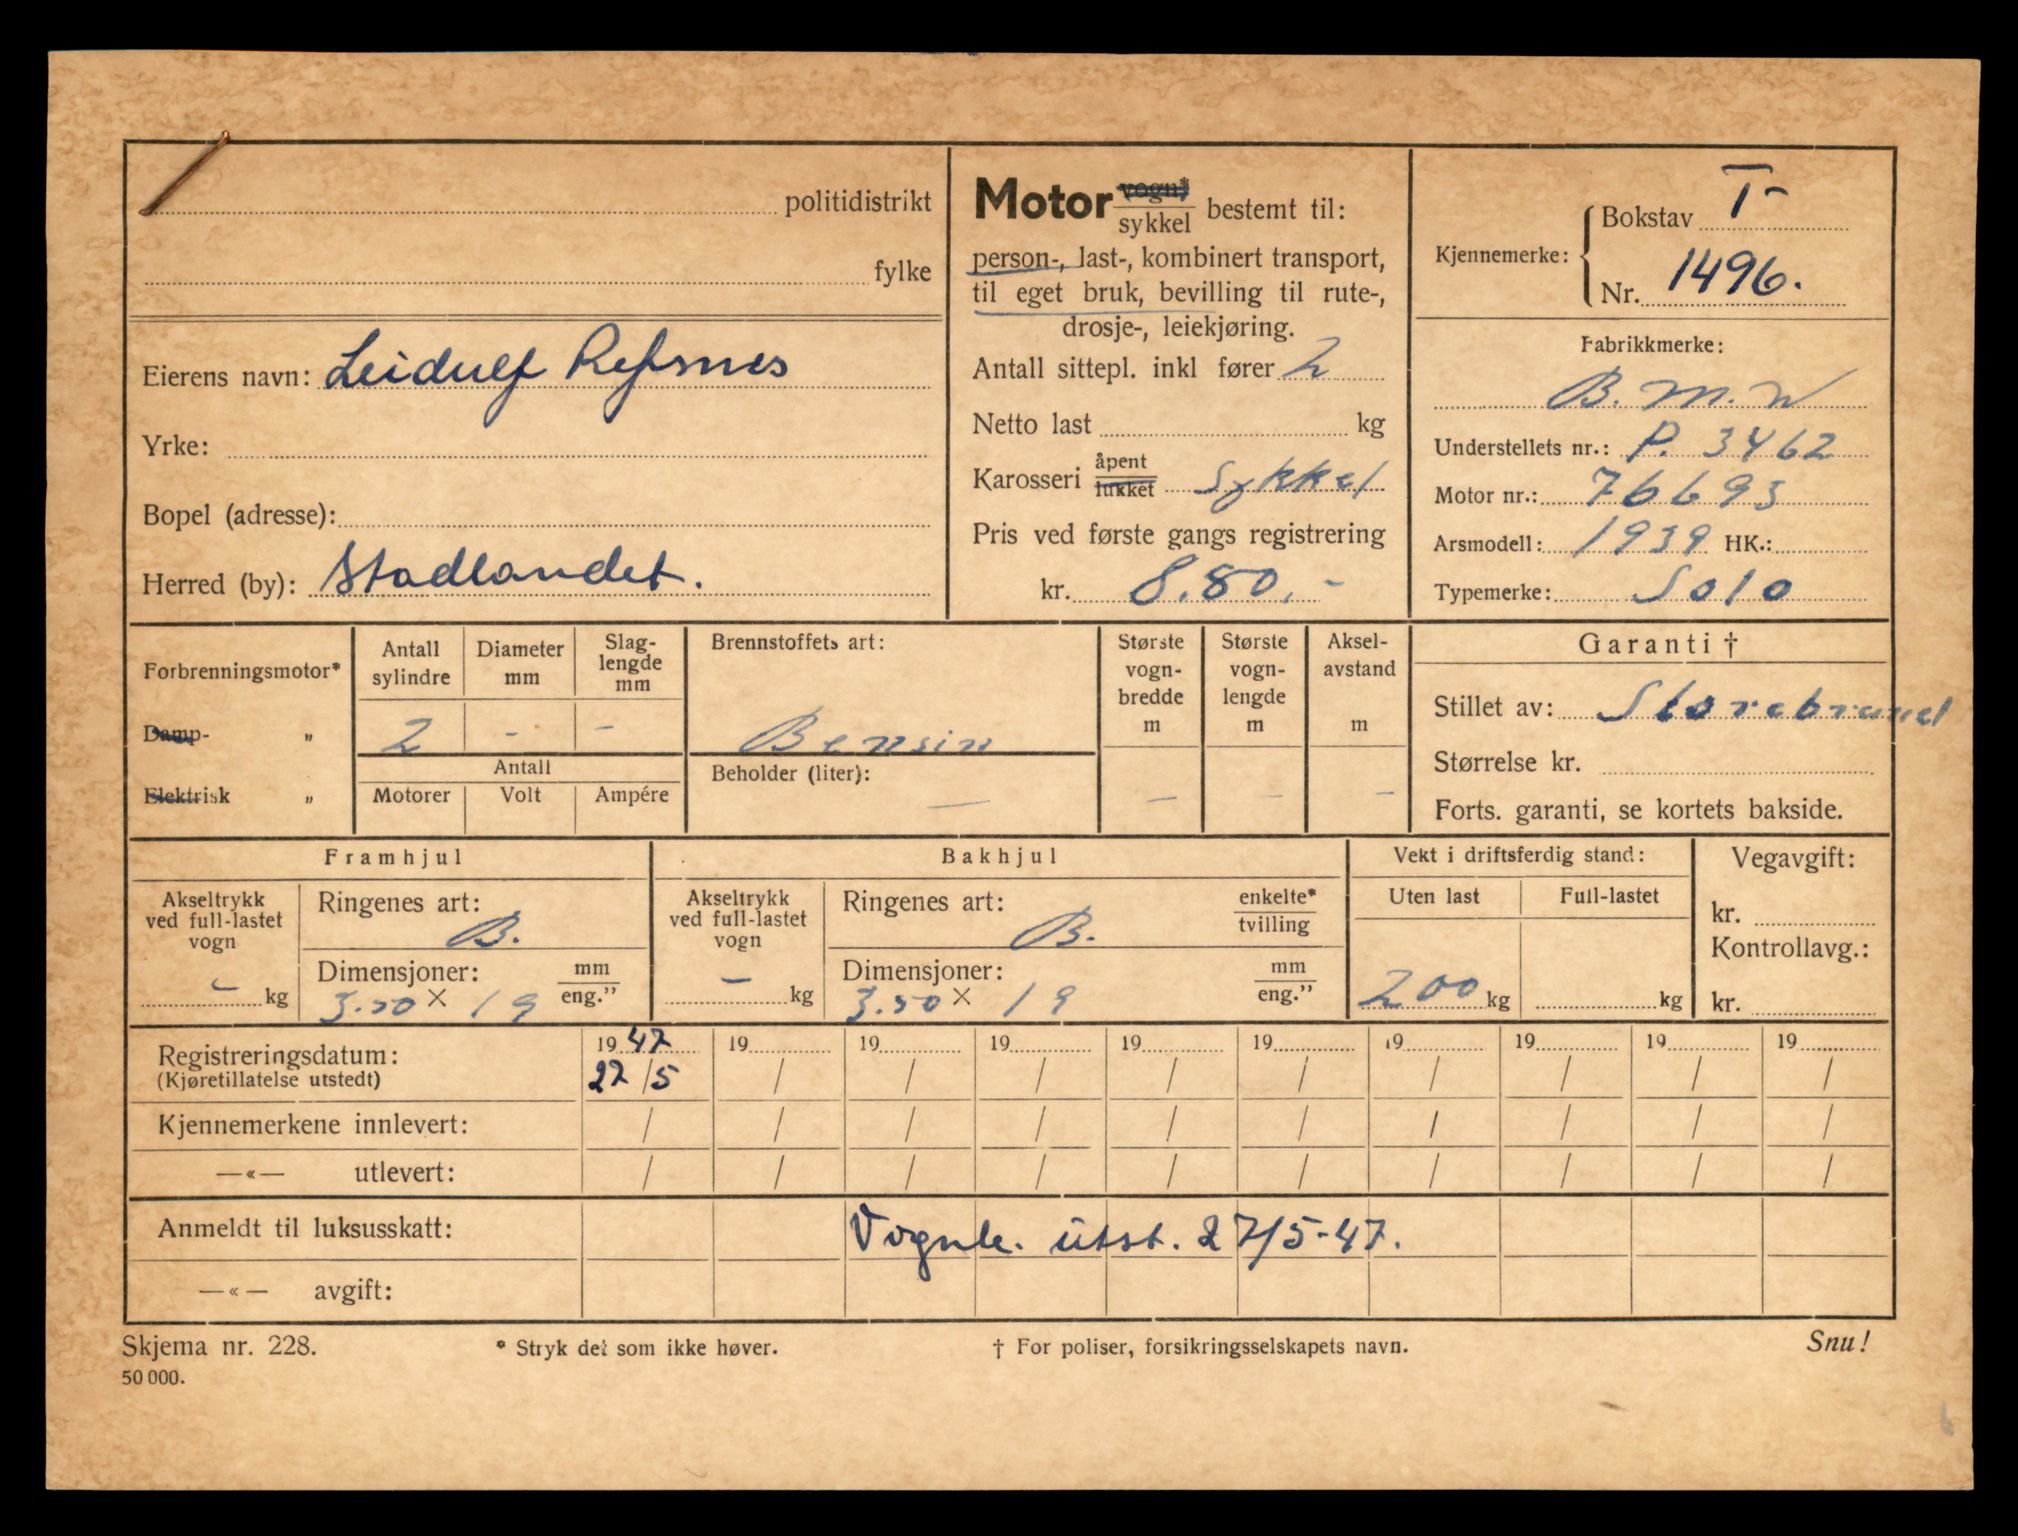 politidistrikt
fylke
Eierens navn: Leidulf Refsnes
Yrke:
Bopel (adresse):
Herred (by): Stadlandet.
Motor vogn*/sykkel bestemt til:
person-, last-, kombinert transport,
til eget bruk, bevilling til rute-,
drosje-, leiekjøring.
Antall sittepl. inkl fører 2
Netto last kg
Karosseri åpent/lukket Sykkel
Pris ved første gangs registrering
kr. 8.80.-
Kjennemerke: Bokstav T-
Nr. 1496.
Fabrikkmerke:
B.M.W
Understellets nr.: P. 3462
Motor nr.: 76693
Arsmodell: 1939 HK.:
Typemerke: Solo
Forbrenningsmotor*
Damp- „
Elektrisk „
Antall sylindre
Diameter mm
Slag-lengde mm
2 - -
Antall
Motorer Volt Ampére
Brennstoffets art:
Bensin
Beholder (liter): —
Største vogn-bredde m —
Største vogn-lengde m —
Aksel-avstand m —
Garanti †
Stillet av: Storebrand
Størrelse kr.
Forts. garanti, se kortets bakside.
Framhjul
Akseltrykk ved full-lastet vogn
- kg
Ringenes art: B.
Dimensjoner: mm/eng."
3.50 × 19
Bakhjul
Akseltrykk ved full-lastet vogn
- kg
Ringenes art: B. enkelte*/tvilling
Dimensjoner: mm/eng."
3.50 × 19
Vekt i driftsferdig stand:
Uten last Full-lastet
200 kg kg
Vegavgift:
kr.
Kontrollavg.:
kr.
Registreringsdatum: 1947 19 19 19 19 19 19 19 19 19
(Kjøretillatelse utstedt) 27/5 / / / / / / / / /
Kjennemerkene innlevert: / / / / / / / / / /
—«— utlevert: / / / / / / / / / /
Anmeldt til luksusskatt: Vognk. utst. 27/5-47.
—«— avgift:
Skjema nr. 228. * Stryk det som ikke høver. † For poliser, forsikringsselskapets navn. Snu!
50 000.